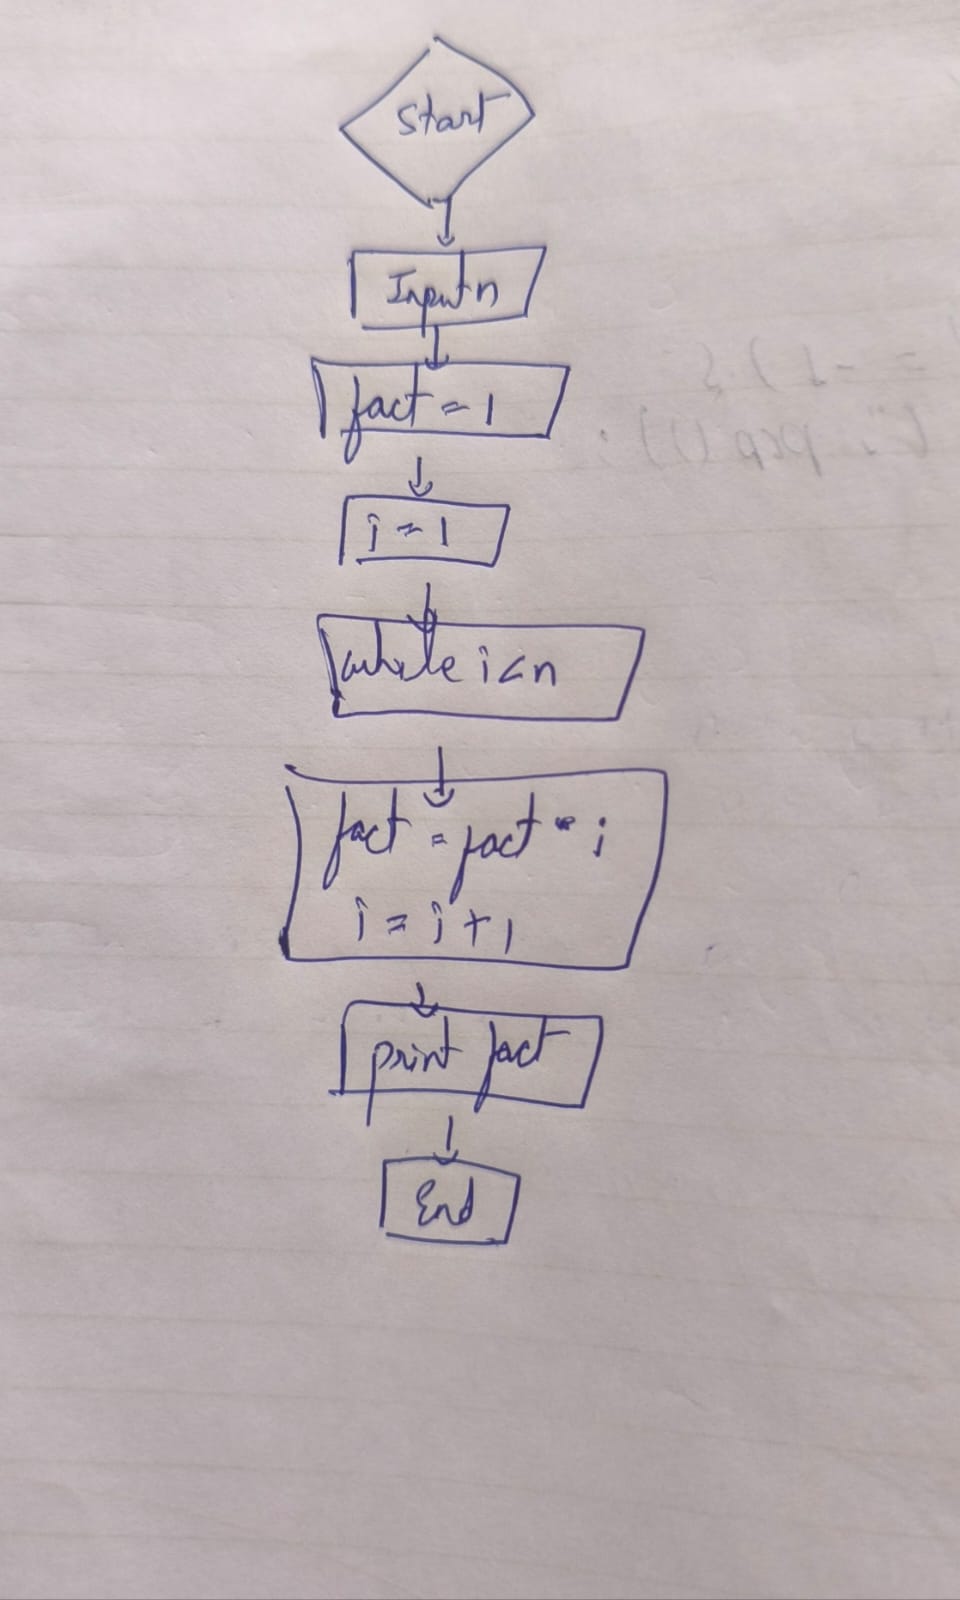 Start
Input n
fact = 1
i = 1
while i < n
fact = fact * i
i = i + 1
print fact
End